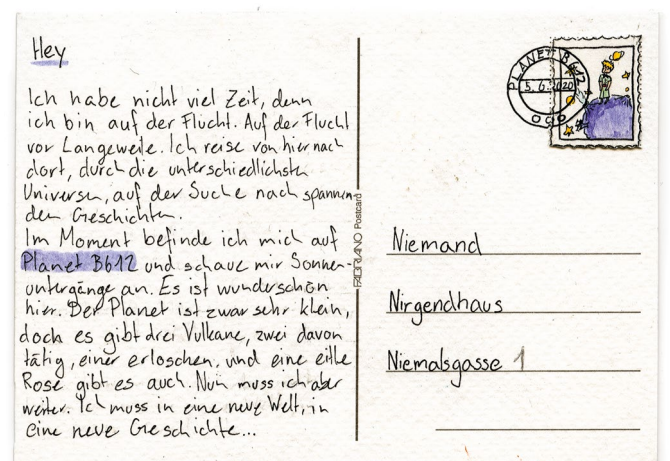 Hey
Ich habe nicht viel Zeit, denn
ich bin auf der Flucht. Auf der Flucht
vor Langeweile. Ich reise von hier nach
dort, durch die unterschiedlichsten
Universen, auf der Suche nach spannen-
den Geschichten.
Im Moment befinde ich mich auf
Planet B612 und schaue mir Sonnen-
untergänge an. Es ist wunderschön
hier. Der Planet ist zwar sehr klein,
doch es gibt drei Vulkane, zwei davon
tätig, einer erloschen, und eine eitle
Rose gibt es auch. Nun muss ich aber
weiter. Ich muss in eine neue Welt, in
eine neue Geschichte...
FABRIANO Postcard
PLANET B612
5.6.2020
Niemand
Nirgendhaus
Niemalsgasse 1